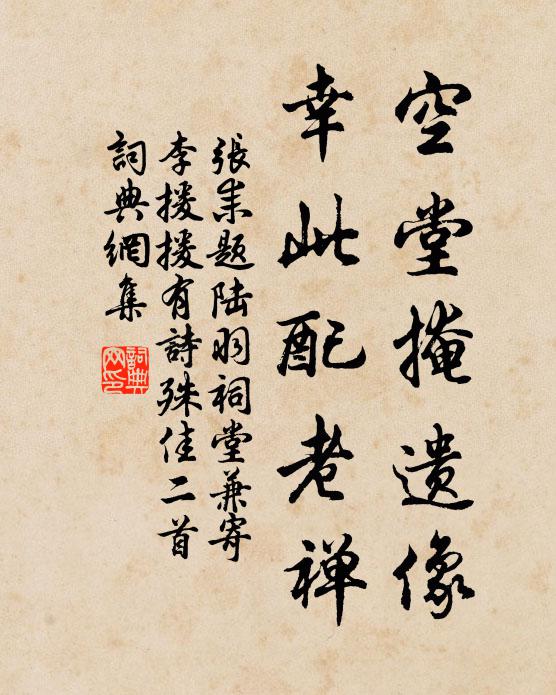 空堂掩遗像
幸此配老禅
張耒题陸羽祠堂兼寄
李援援有詩殊佳二首
詞典網集
詞典
网印